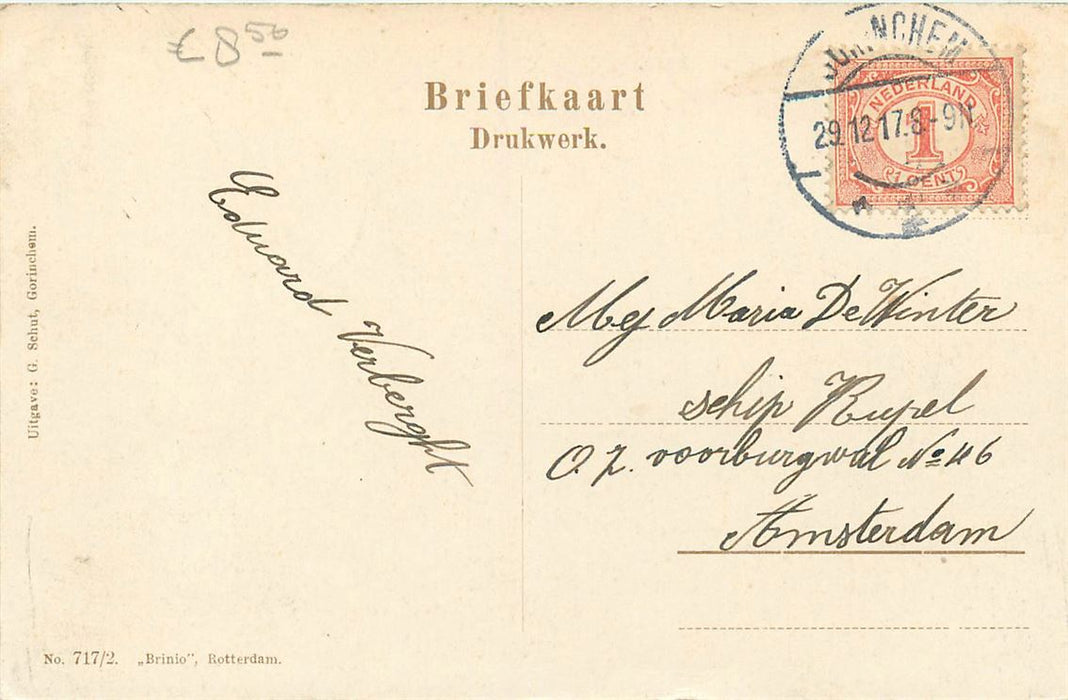 € 8 50
Briefkaart
Drukwerk.
NEDERLAND
1
1 CENT
29.12.17.8-9N
Eduard Verberght
Mej Maria De Winter
schip Rupel
O. Z. voorburgwal No 46
Amsterdam
Uitgave: G. Schut, Gorinchem.
No. 717/2. „Brinio”, Rotterdam.